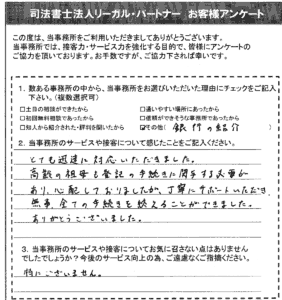 司法書士法人リーガル・パートナー　お客様アンケート
この度は、当事務所をご利用いただきましてありがとうございます。
当事務所では、接客力・サービス力を強化する目的で、皆様にアンケートの
ご協力を頂いております。お手数ですが、ご協力下されば幸いです。
1. 数ある事務所の中から、当事務所をお選びいただいた理由にチェックをご記入
下さい。（複数選択可）
□土日の相談ができたから　□通いやすい場所にあったから
□初回無料相談であったから　□信頼ができそうな事務所であったから
□知人から紹介された・評判を聞いたから　☑その他（ 銀行の紹介 ）
2. 当事務所のサービスや接客について感じたことをご記入ください。
とても迅速に対応いただきました。
高齢の祖母も登記の手続きに関する必要が
あり、心配しておりましたが、丁寧にサポートいただき
無事、全ての手続きを終えることができました。
ありがとうございました。
3. 当事務所のサービスや接客についてお気に召さない点はありません
でしたでしょうか？今後のサービス向上の為、ご遠慮なくご指摘ください。
特にございません。